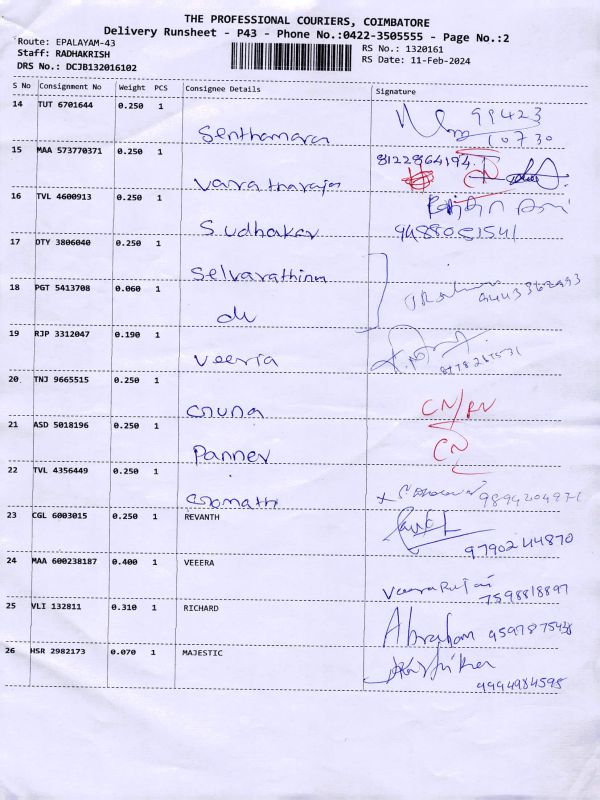 THE PROFESSIONAL COURIERS, COIMBATORE
Delivery Runsheet - P43 - Phone No.:0422-3505555 - Page No.:2
Route: EPALAYAM-43 RS No.: 1320161
Staff: RADHAKRISH RS Date: 11-Feb-2024
DRS No.: DCJB132016102
S No Consignment No Weight PCS Consignee Details Signature
14 TUT 6701644 0.250 1 99423
Senthamara 10730
15 MAA 573770371 0.250 1 8122864194
Varatharajos
16 TVL 4600913 0.250 1
Sudhaker 9488081541
17 DTY 3806040 0.250 1
Selvarathinn
18 PGT 5413708 0.060 1
do 9443362493
19 RJP 3312047 0.190 1
Veeria
20 TNJ 9665515 0.250 1
Cruna CN/RN
21 ASD 5018196 0.250 1
Panner CN
22 TVL 4356449 0.250 1
Gomathi 9894204971
23 CGL 6003015 0.250 1 REVANTH
9790244870
24 MAA 600238187 0.400 1 VEEERA
7598818897
25 VLI 132811 0.310 1 RICHARD
Abraham 9597875438
26 HSR 2982173 0.070 1 MAJESTIC
9994984595